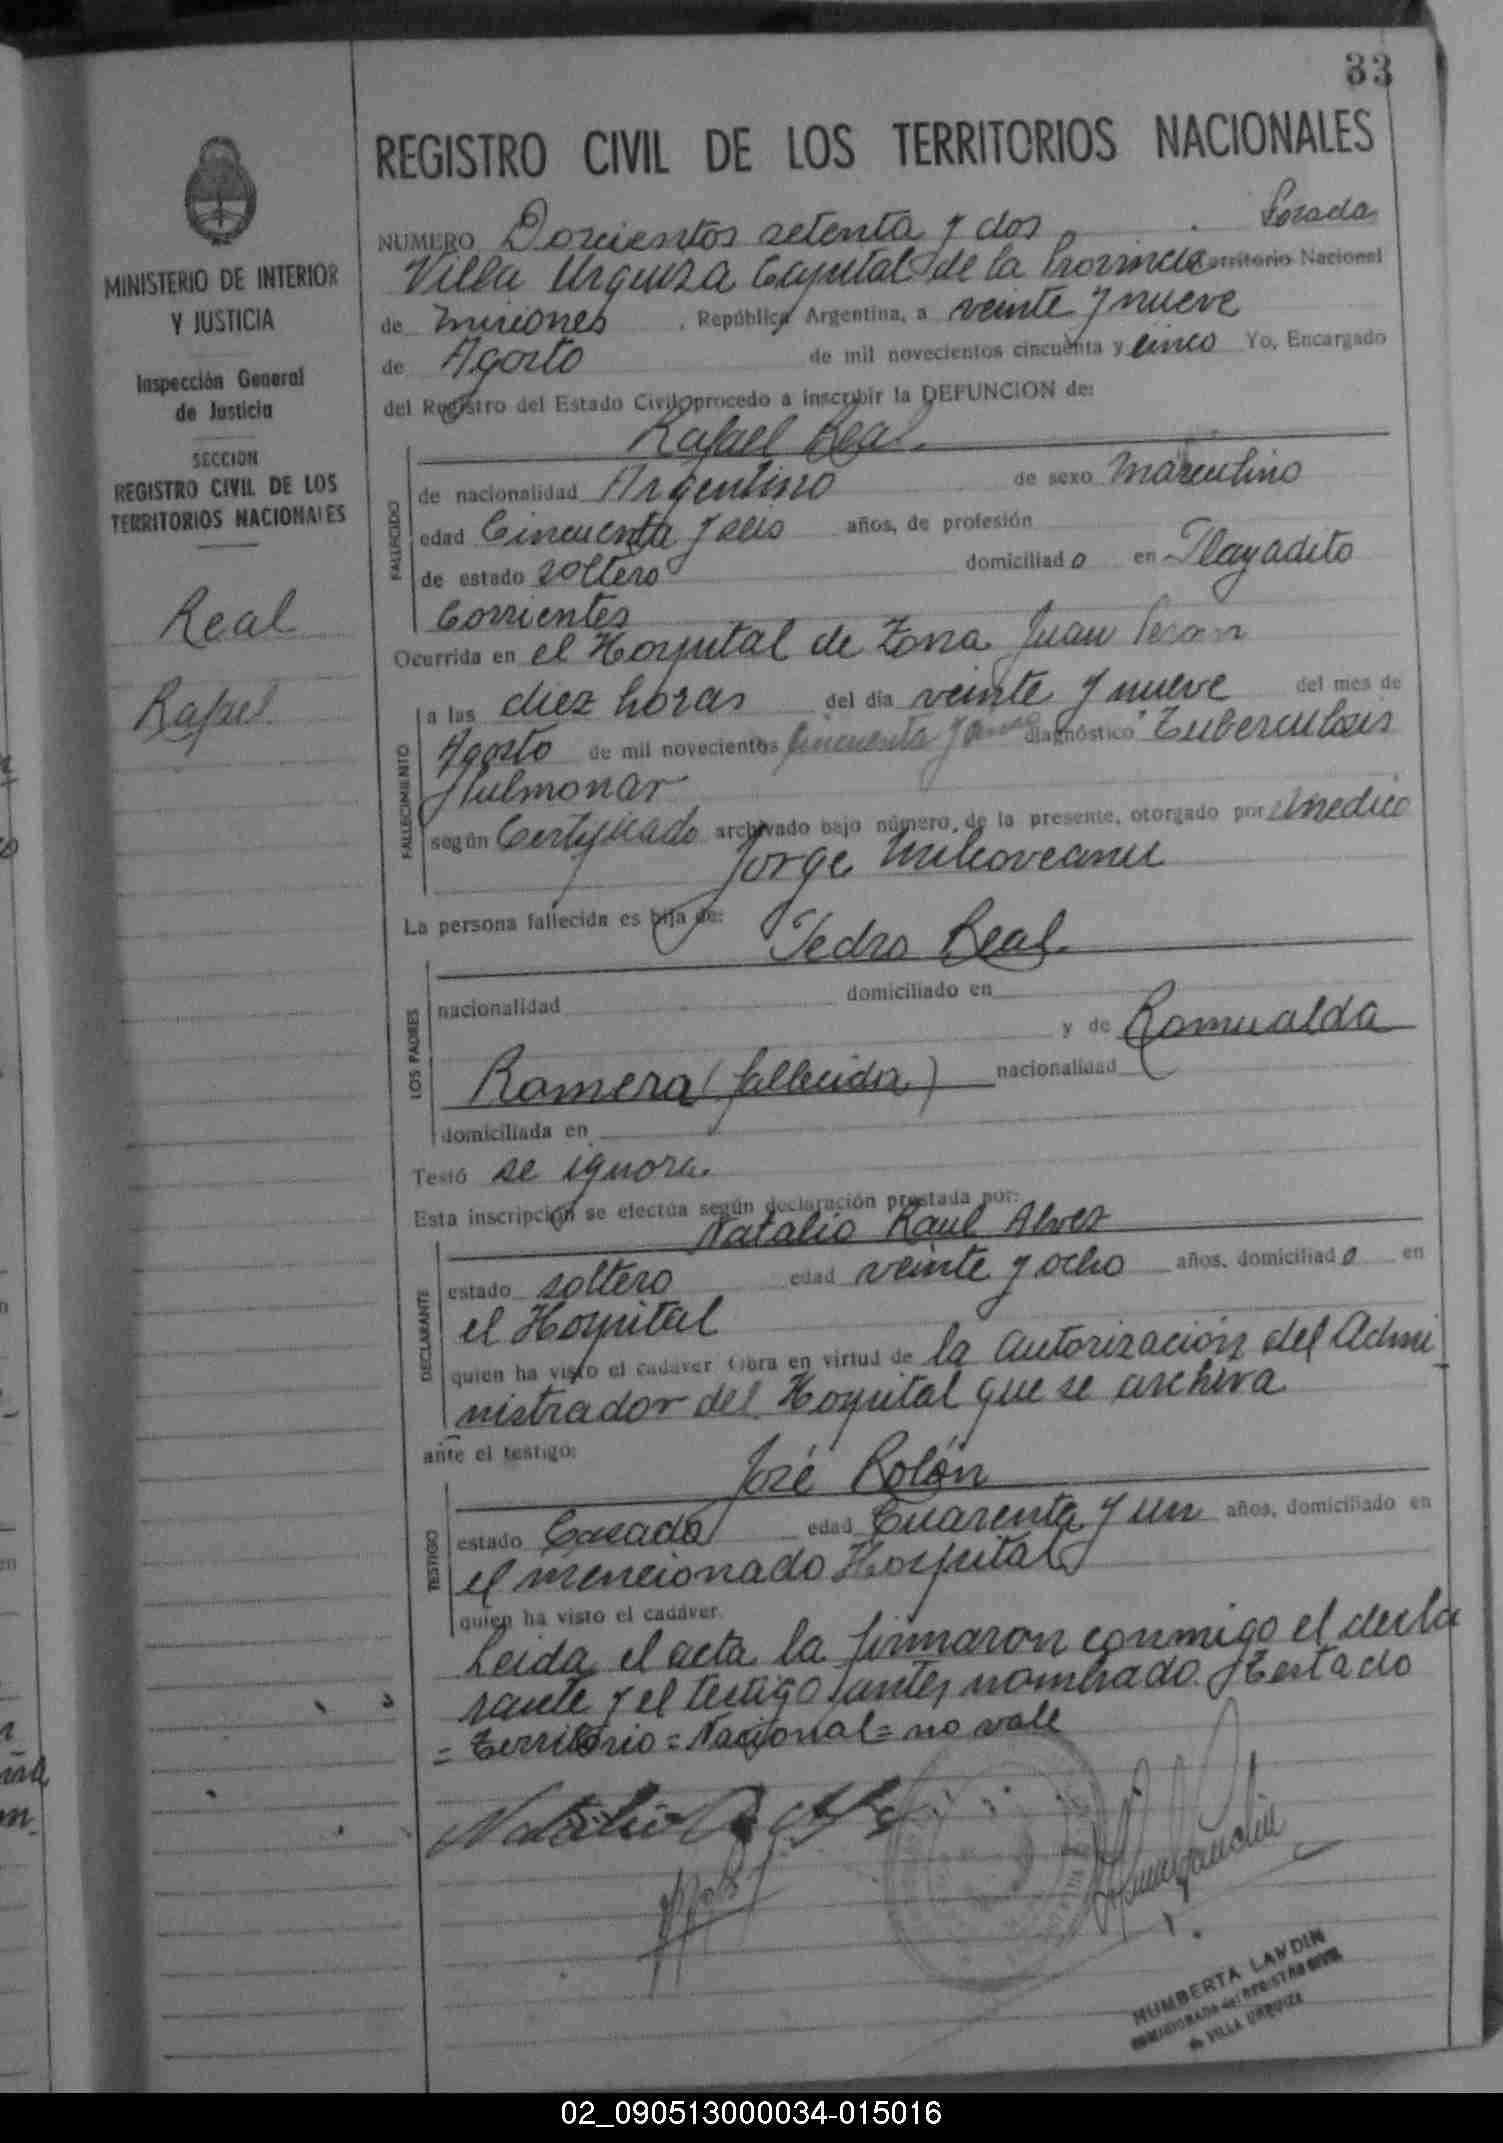 33
REGISTRO CIVIL DE LOS TERRITORIOS NACIONALES
MINISTERIO DE INTERIOR
Y JUSTICIA
Inspección General
de Justicia
SECCION
REGISTRO CIVIL DE LOS
TERRITORIOS NACIONALES
Real
Rafael
NUMERO Doscientos setenta y dos Posadas
Villa Urquiza Capital de la Provincia Territorio Nacional
de Misiones, República Argentina, a veinte y nueve
de Agosto de mil novecientos cincuenta y cinco Yo, Encargado
del Registro del Estado Civil procedo a inscribir la DEFUNCION de:
Rafael Real
FALLECIDO
de nacionalidad Argentino de sexo Masculino
edad Cincuenta y seis años, de profesión
de estado soltero domiciliado en Playadito
Corrientes
Ocurrida en el Hospital de Zona Juan Peron
FALLECIMIENTO
a las diez horas del día veinte y nueve del mes de
Agosto de mil novecientos cincuenta y cinco diagnóstico Tuberculosis
Pulmonar
según Certificado archivado bajo número, de la presente, otorgado por el medico
Jorge
La persona fallecida es hija de:
Pedro Real
LOS PADRES
nacionalidad domiciliado en
y de Romualda
Romera (fallecida) nacionalidad
domiciliada en
Testó se ignora
Esta inscripción se efectúa según declaración prestada por:
Natalio Raul Alvez
DECLARANTE
estado soltero edad veinte y ocho años, domiciliado en
el Hospital
quien ha visto el cadáver. Obra en virtud de la autorización del Admi
nistrador del Hospital que se archiva
ante el testigo:
José Rolón
TESTIGO
estado Casado edad Cuarenta y un años, domiciliado en
el mencionado Hospital
quien ha visto el cadáver.
Leida el acta la firmaron conmigo el decla
rante y el testigo antes nombrado. Testado
= Territorio = Nacional = no vale
HUMBERTA LANDIN
del REGISTRO CIVIL
de VILLA URQUIZA
02_090513000034-015016